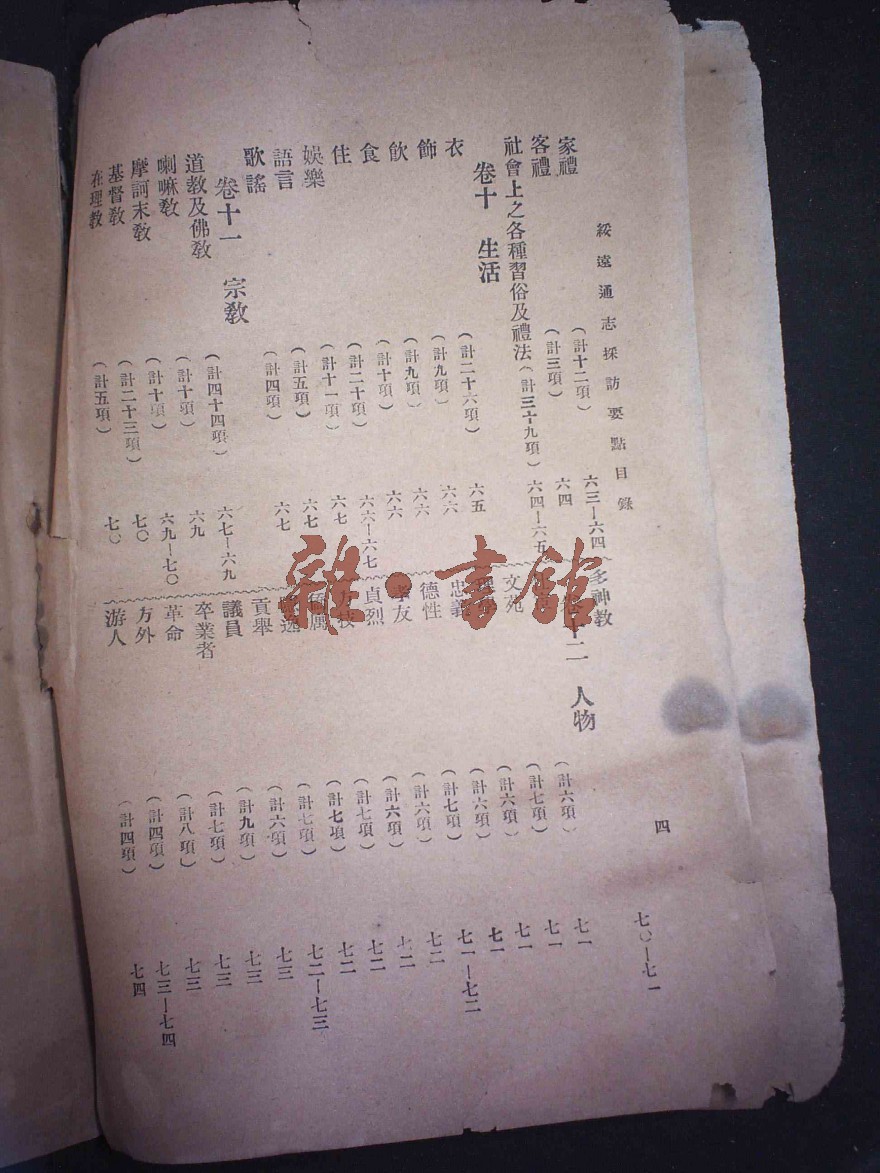 綏遠通志採訪要點目錄 四
家禮 (計十二項) 六三—六四
客禮 (計三項) 六四
社會上之各種習俗及禮法(計三十九項) 六四—六五
卷十 生活
衣 (計二十六項) 六五
飾 (計九項) 六六
飲 (計九項) 六六
食 (計十項) 六六
住 (計二十項) 六六—六七
娛樂 (計十一項) 六七
語言 (計五項) 六七
歌謠 (計四項) 六七
卷十一 宗教
道教及佛教 (計四十四項) 六七—六九
喇嘛教 (計十項) 六九
摩訶末教 (計十項) 六九—七〇
基督教 (計二十三項) 七〇
在理教 (計五項) 七〇
多神教 七〇—七一
十二 人物
(計六項) 七一
文苑 (計七項) 七一
(計六項) 七一
忠義 (計六項) 七一
德性 (計七項) 七一—七二
孝友 (計六項) 七二
貞烈 (計六項) 七二
方技 (計七項) 七二
(計七項) 七二
(計七項) 七二—七三
貢舉 (計六項) 七三
議員 (計九項) 七三
卒業者 (計七項) 七三
革命 (計八項) 七三
方外 (計四項) 七三—七四
游人 (計四項) 七四
雜·書館